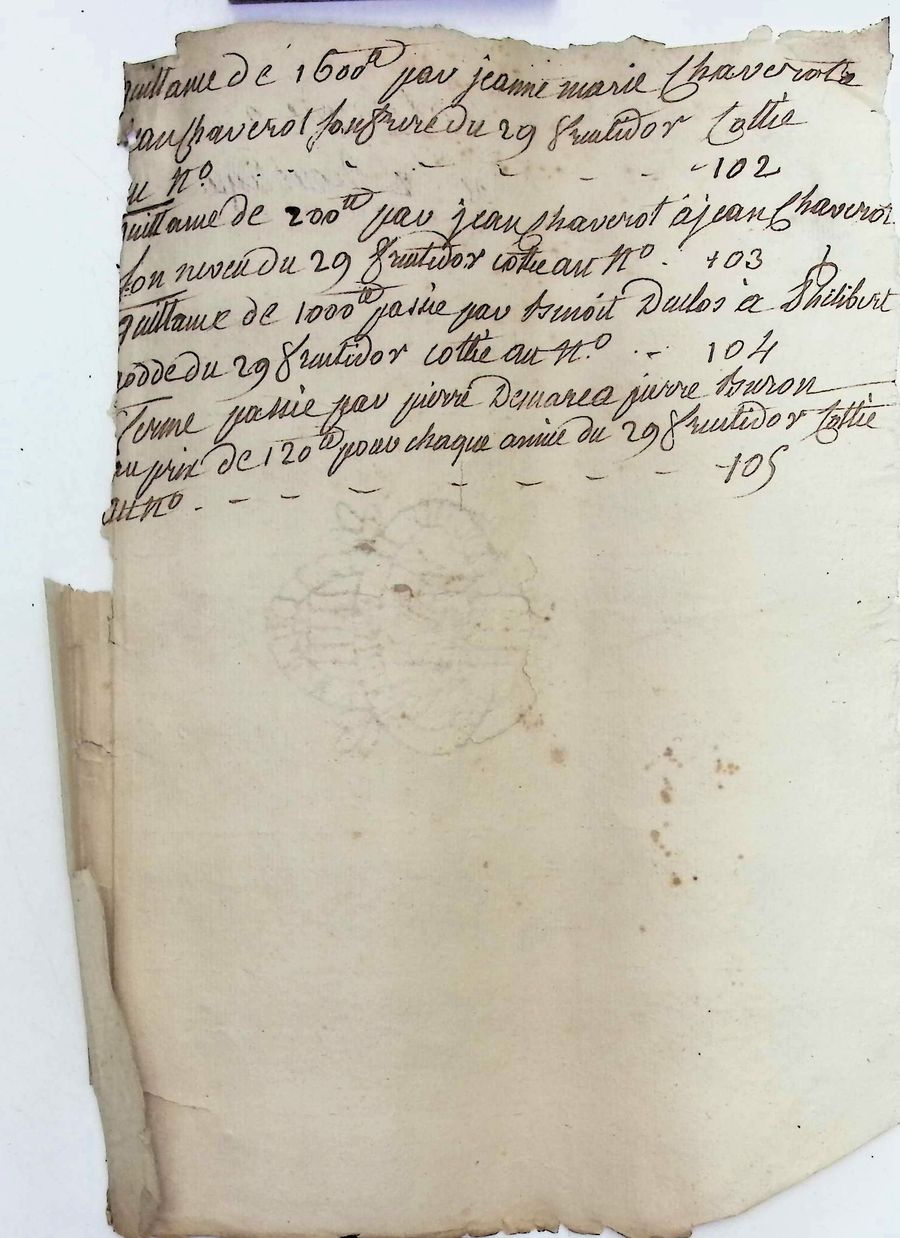 quittance de 1600tt par jeanne marie Chaverot a
jean Chaverot son frere du 29 fructidor Cottée
au N°. - - - - - - - 102
quittance de 200tt par jean Chaverot à jean Chaverot
son neveu du 29 fructidor cottée au N°. 103
quittance de 1000tt passée par Benoit Duclos à Philibert
du 29 fructidor cottée au N°. - 104
ferme passée par pierre a pierre Buron
au prix de 120tt pour chaque année du 29 fructidor Cottée
au N° - - - - - - - 105